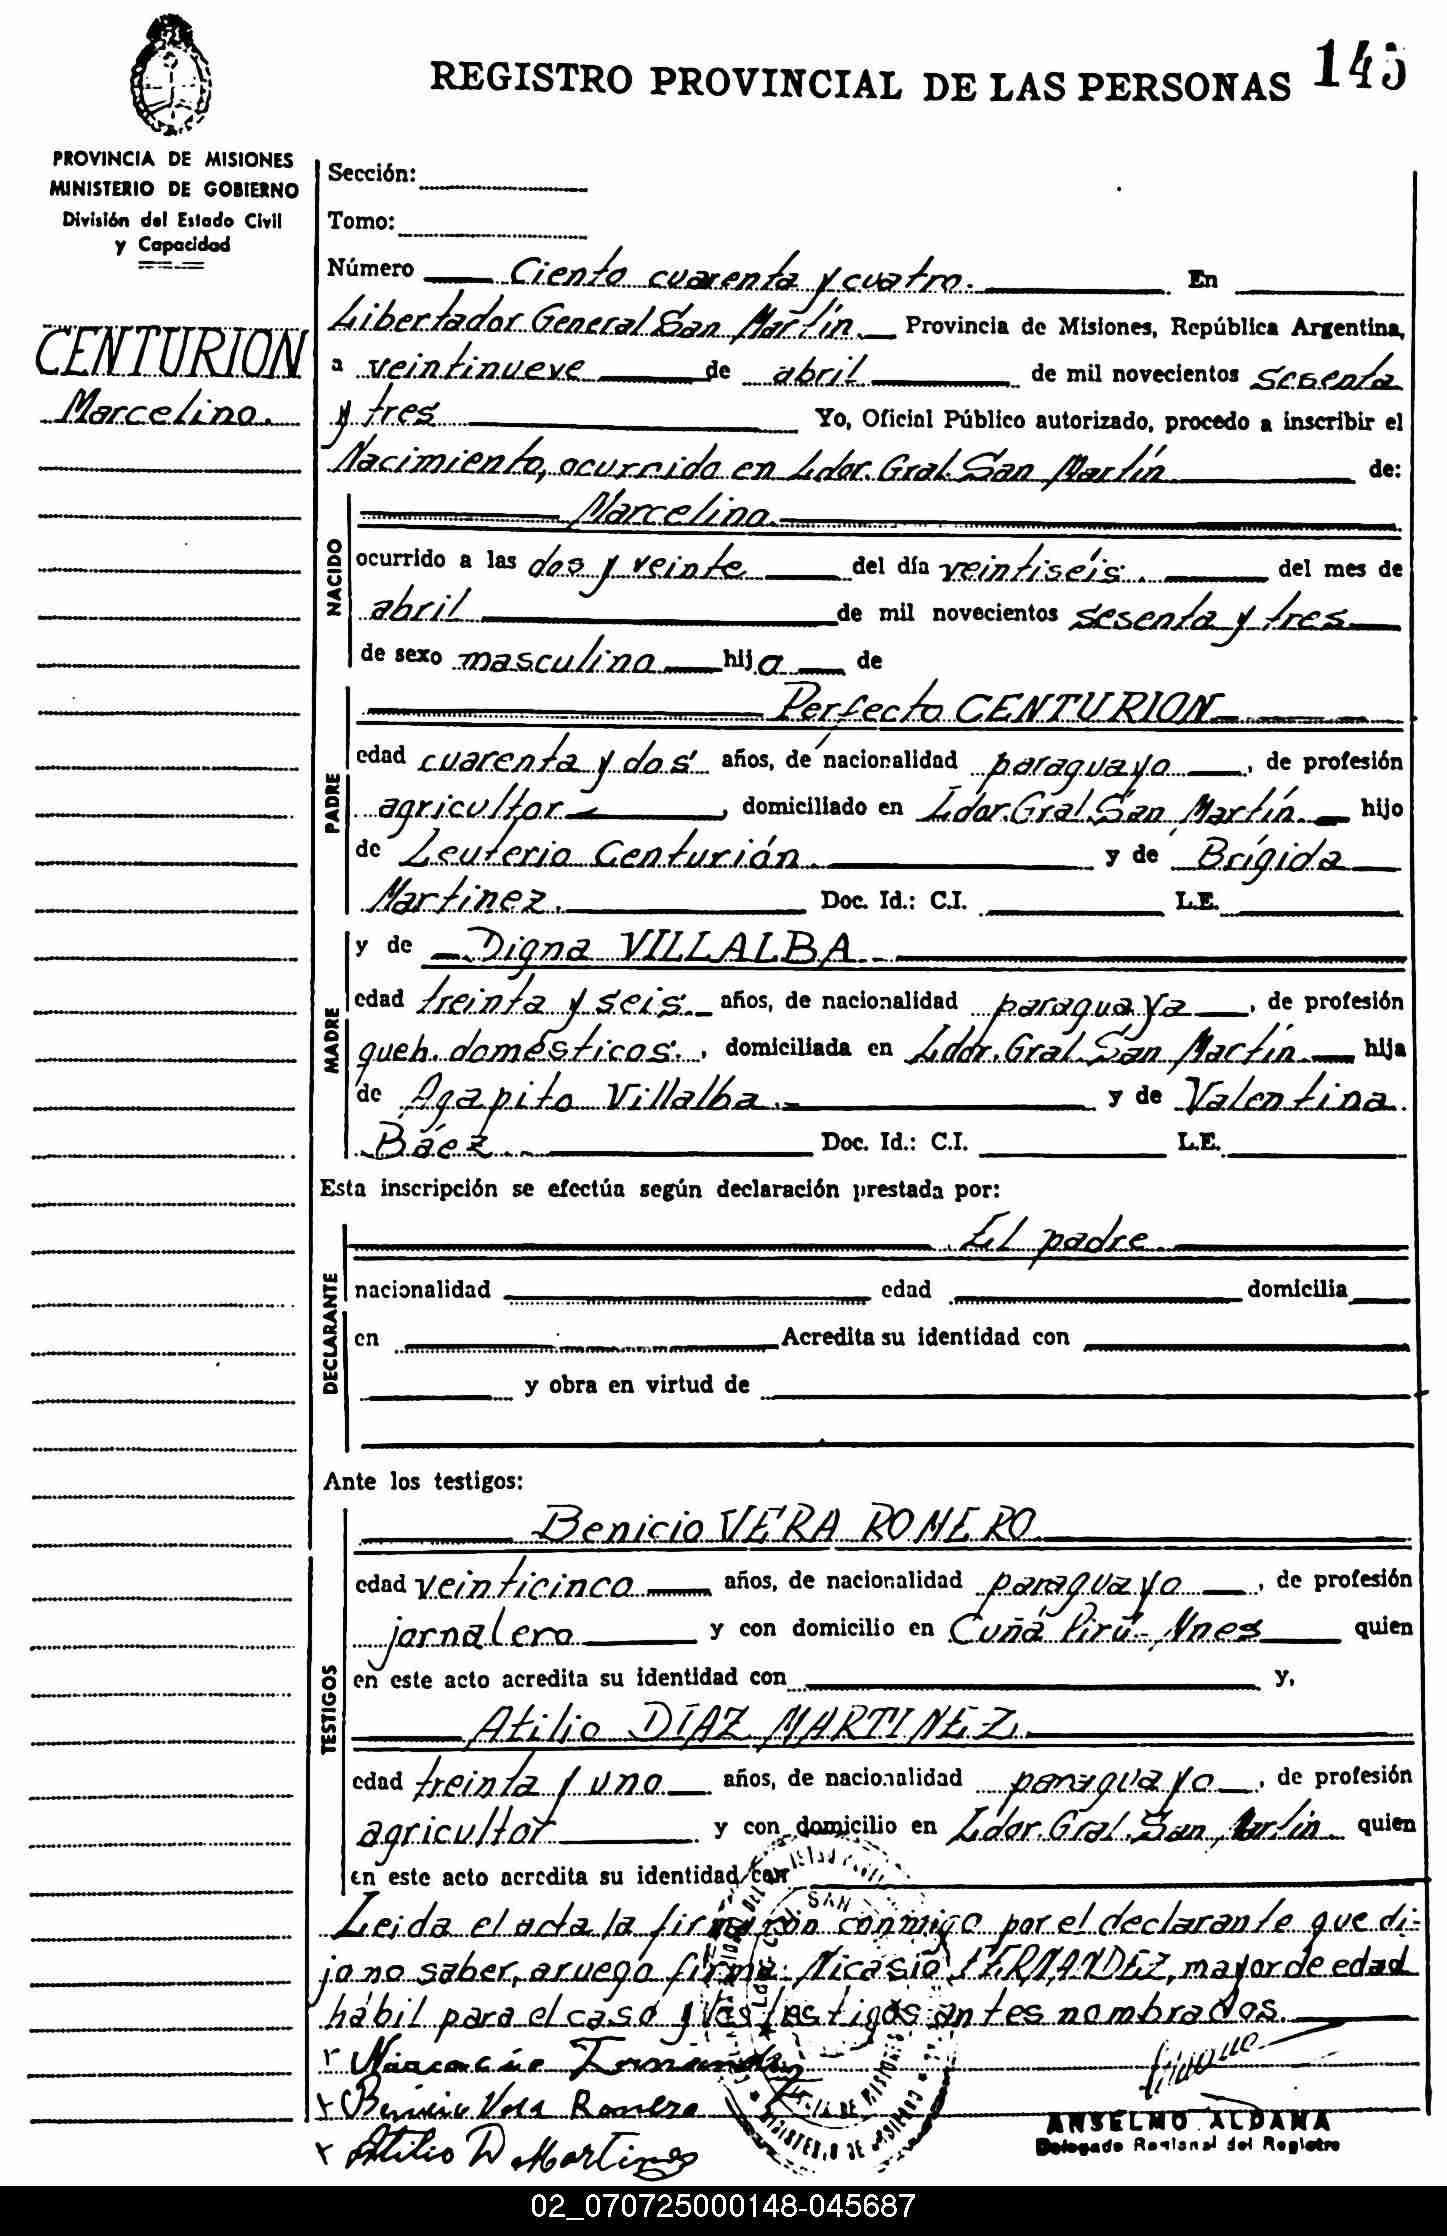 REGISTRO PROVINCIAL DE LAS PERSONAS 145
PROVINCIA DE MISIONES
MINISTERIO DE GOBIERNO
División del Estado Civil
y Capacidad
CENTURION
Marcelino.
Sección:
Tomo:
Número Ciento cuarenta y cuatro. En
Libertador General San Martín. Provincia de Misiones, República Argentina,
a veintinueve de abril de mil novecientos sesenta
y tres Yo, Oficial Público autorizado, procedo a inscribir el
Nacimiento, ocurrido en Ldor. Gral. San Martín de:
NACIDO
Marcelino
ocurrido a las dos y veinte del día veintiséis. del mes de
abril de mil novecientos sesenta y tres
de sexo masculino hijo de
PADRE
Perfecto CENTURION
edad cuarenta y dos años, de nacionalidad paraguayo, de profesión
agricultor, domiciliado en Ldor. Gral. San Martín. hijo
de Leuterio Centurión. y de Brígida
Martinez. Doc. Id.: C.I. L.E.
MADRE
y de Digna VILLALBA.
edad treinta y seis. años, de nacionalidad paraguaya, de profesión
queh. domésticos., domiciliada en Ldor. Gral. San Martín. hija
de Agapito Villalba.- y de Valentina
Báez. Doc. Id.: C.I. L.E.
Esta inscripción se efectúa según declaración prestada por:
DECLARANTE
El padre.
nacionalidad edad domicilia
en Acredita su identidad con
y obra en virtud de
Ante los testigos:
TESTIGOS
Benicio VERA ROMERO
edad veinticinco años, de nacionalidad paraguayo, de profesión
jornalero y con domicilio en Cuñá Pirú - Mnes quien
en este acto acredita su identidad con y,
Atilio DÍAZ MARTINEZ.
edad treinta y uno años, de nacionalidad paraguayo, de profesión
agricultor y con domicilio en Ldor. Gral. San Martín. quien
en este acto acredita su identidad con
Leida el acta la firmaron conmigo por el declarante que di-
jo no saber, a ruego firma: Nicasio FERNANDEZ, mayor de edad
hábil para el caso y los testigos antes nombrados.
Benicio Vera Romero
Atilio D Martinez
ANSELMO ALDANA
Delegado Regional del Registro
02_070725000148-045687